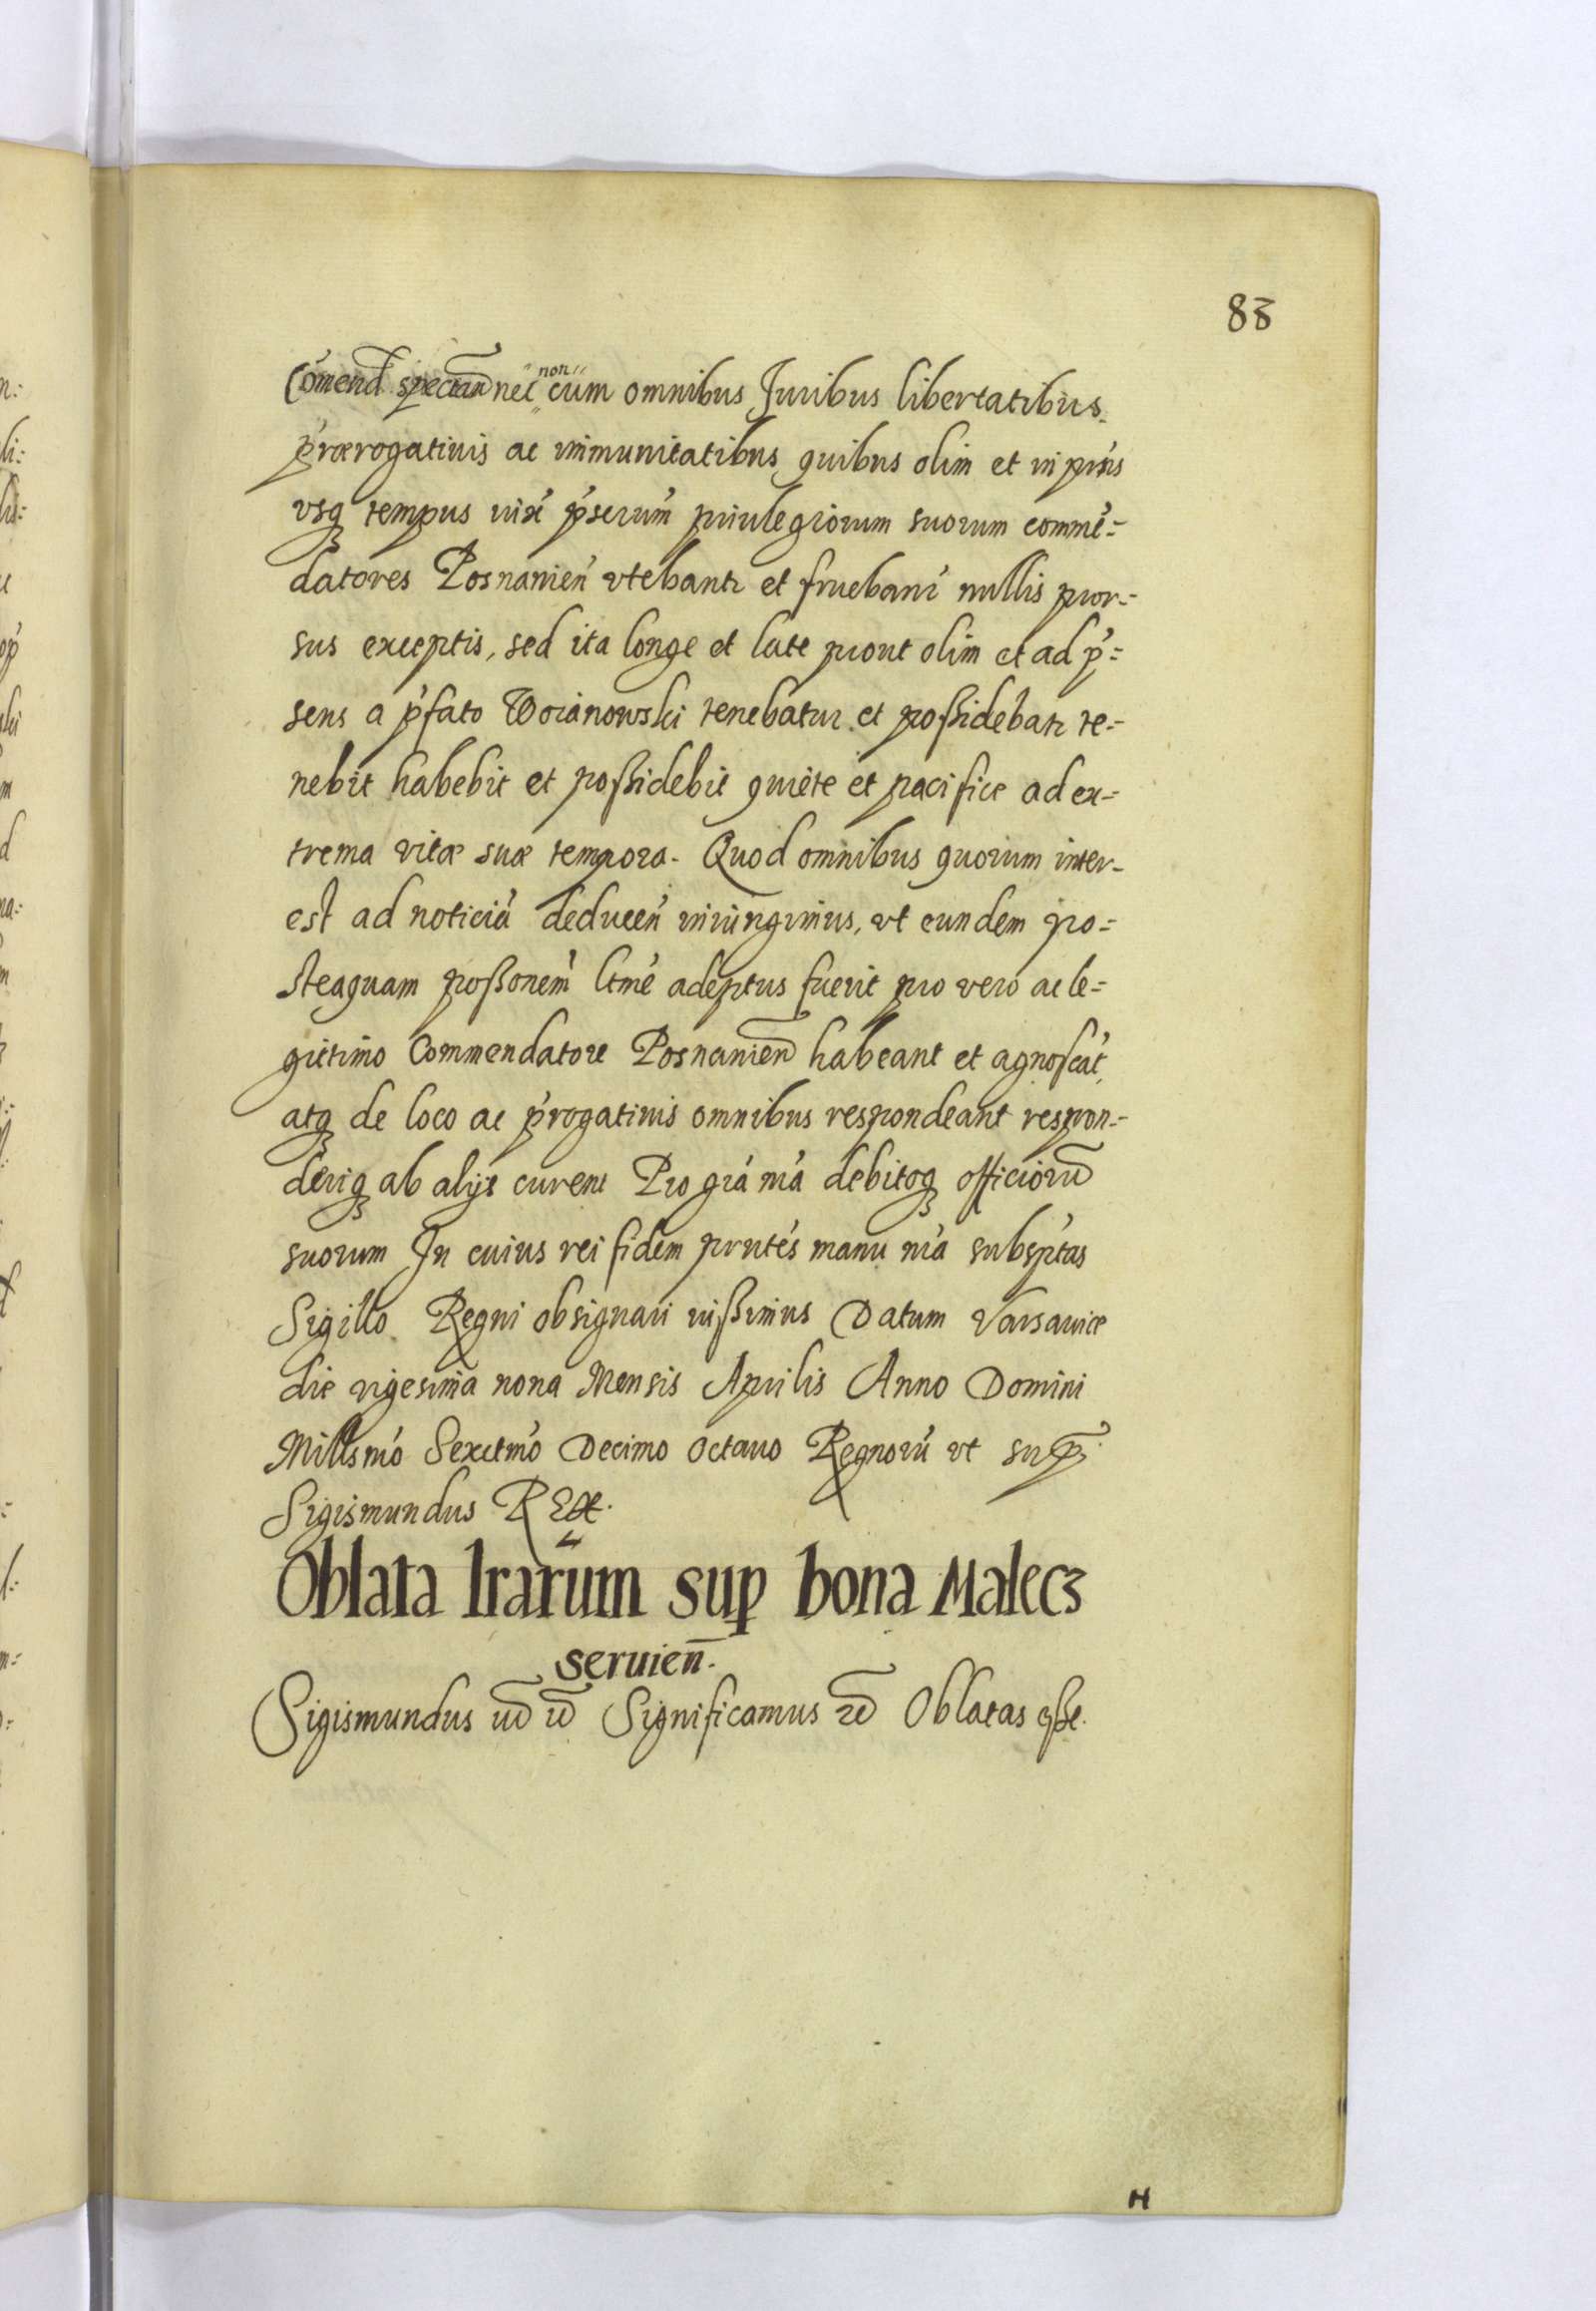 83
Com̃end spectan nec "non" cum omnibus Juribus libertatibus
prærogatiuis ac immunitatibus quibus olim et in prńs
vsq tempus iuxť p̓scrum̓ priuilegiorum suorum commē=
datores Posnanień vtebantr et fruebanť nullis pror=
sus exceptis, sed ita longe et late prout olim et ad p̓=
sens a p̓fato Woianowski tenebatur et poßidebatr te=
nebit habebit et poßidebit quiete et pacifice ad ex=
trema vitæ suæ tempora. Quod omnibus quorum inter=
est ad noticiā deducen̄ iniungimus, vt eundem po=
steaquam poßonem̓ ltmé adeptus fuerit pro vero ac le=
gittimo Commendatore Posnanień habeant et agnoscāt
atq de loco ac p̓rogatiuis omnibus respondeant respon=
deriq ab alijs curent Pro gŕa nŕa debitoq officiorū
suorum In cuius rei fidem prntés manu nŕa subsptas
Sigillo Regni obsignari iußimus Datum Varsauiæ
die vigesima nona Mensis Aprilis Anno Domini
Millsmó Sexctmó Decimo Octauo Regnorū vt sup̓
Sigismundus REX.
Oblata lrarum sup bona Malecz
seruień.
Sigismundus Significamus Oblatas eße.
H